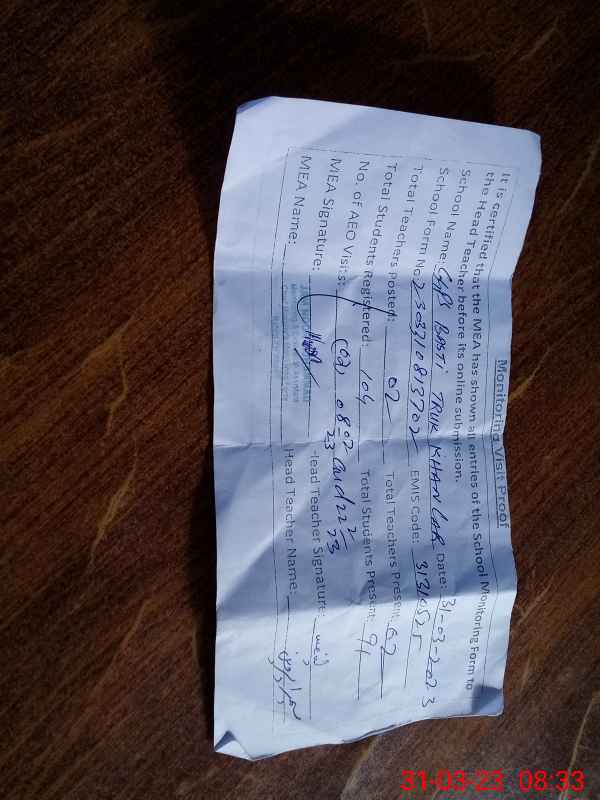 Monitoring Visit Proof
It is certified that the MEA has shown all entries of the School Monitoring Form to
the Head Teacher before its online submission.
School Name: BASTI TRUK KHAN Date: 31-03-2023
School Form No. 2303710813702 EMIS Code: 31310525
Total Teachers Posted: 02 Total Teachers Present: 02
Total Students Registered: 104 Total Students Present: 91
No. of AEO Visits: (02) 08-02-23 and 22
MEA Signature: Head Teacher Signature:
MEA Name: Head Teacher Name:
31-03-23 08:33